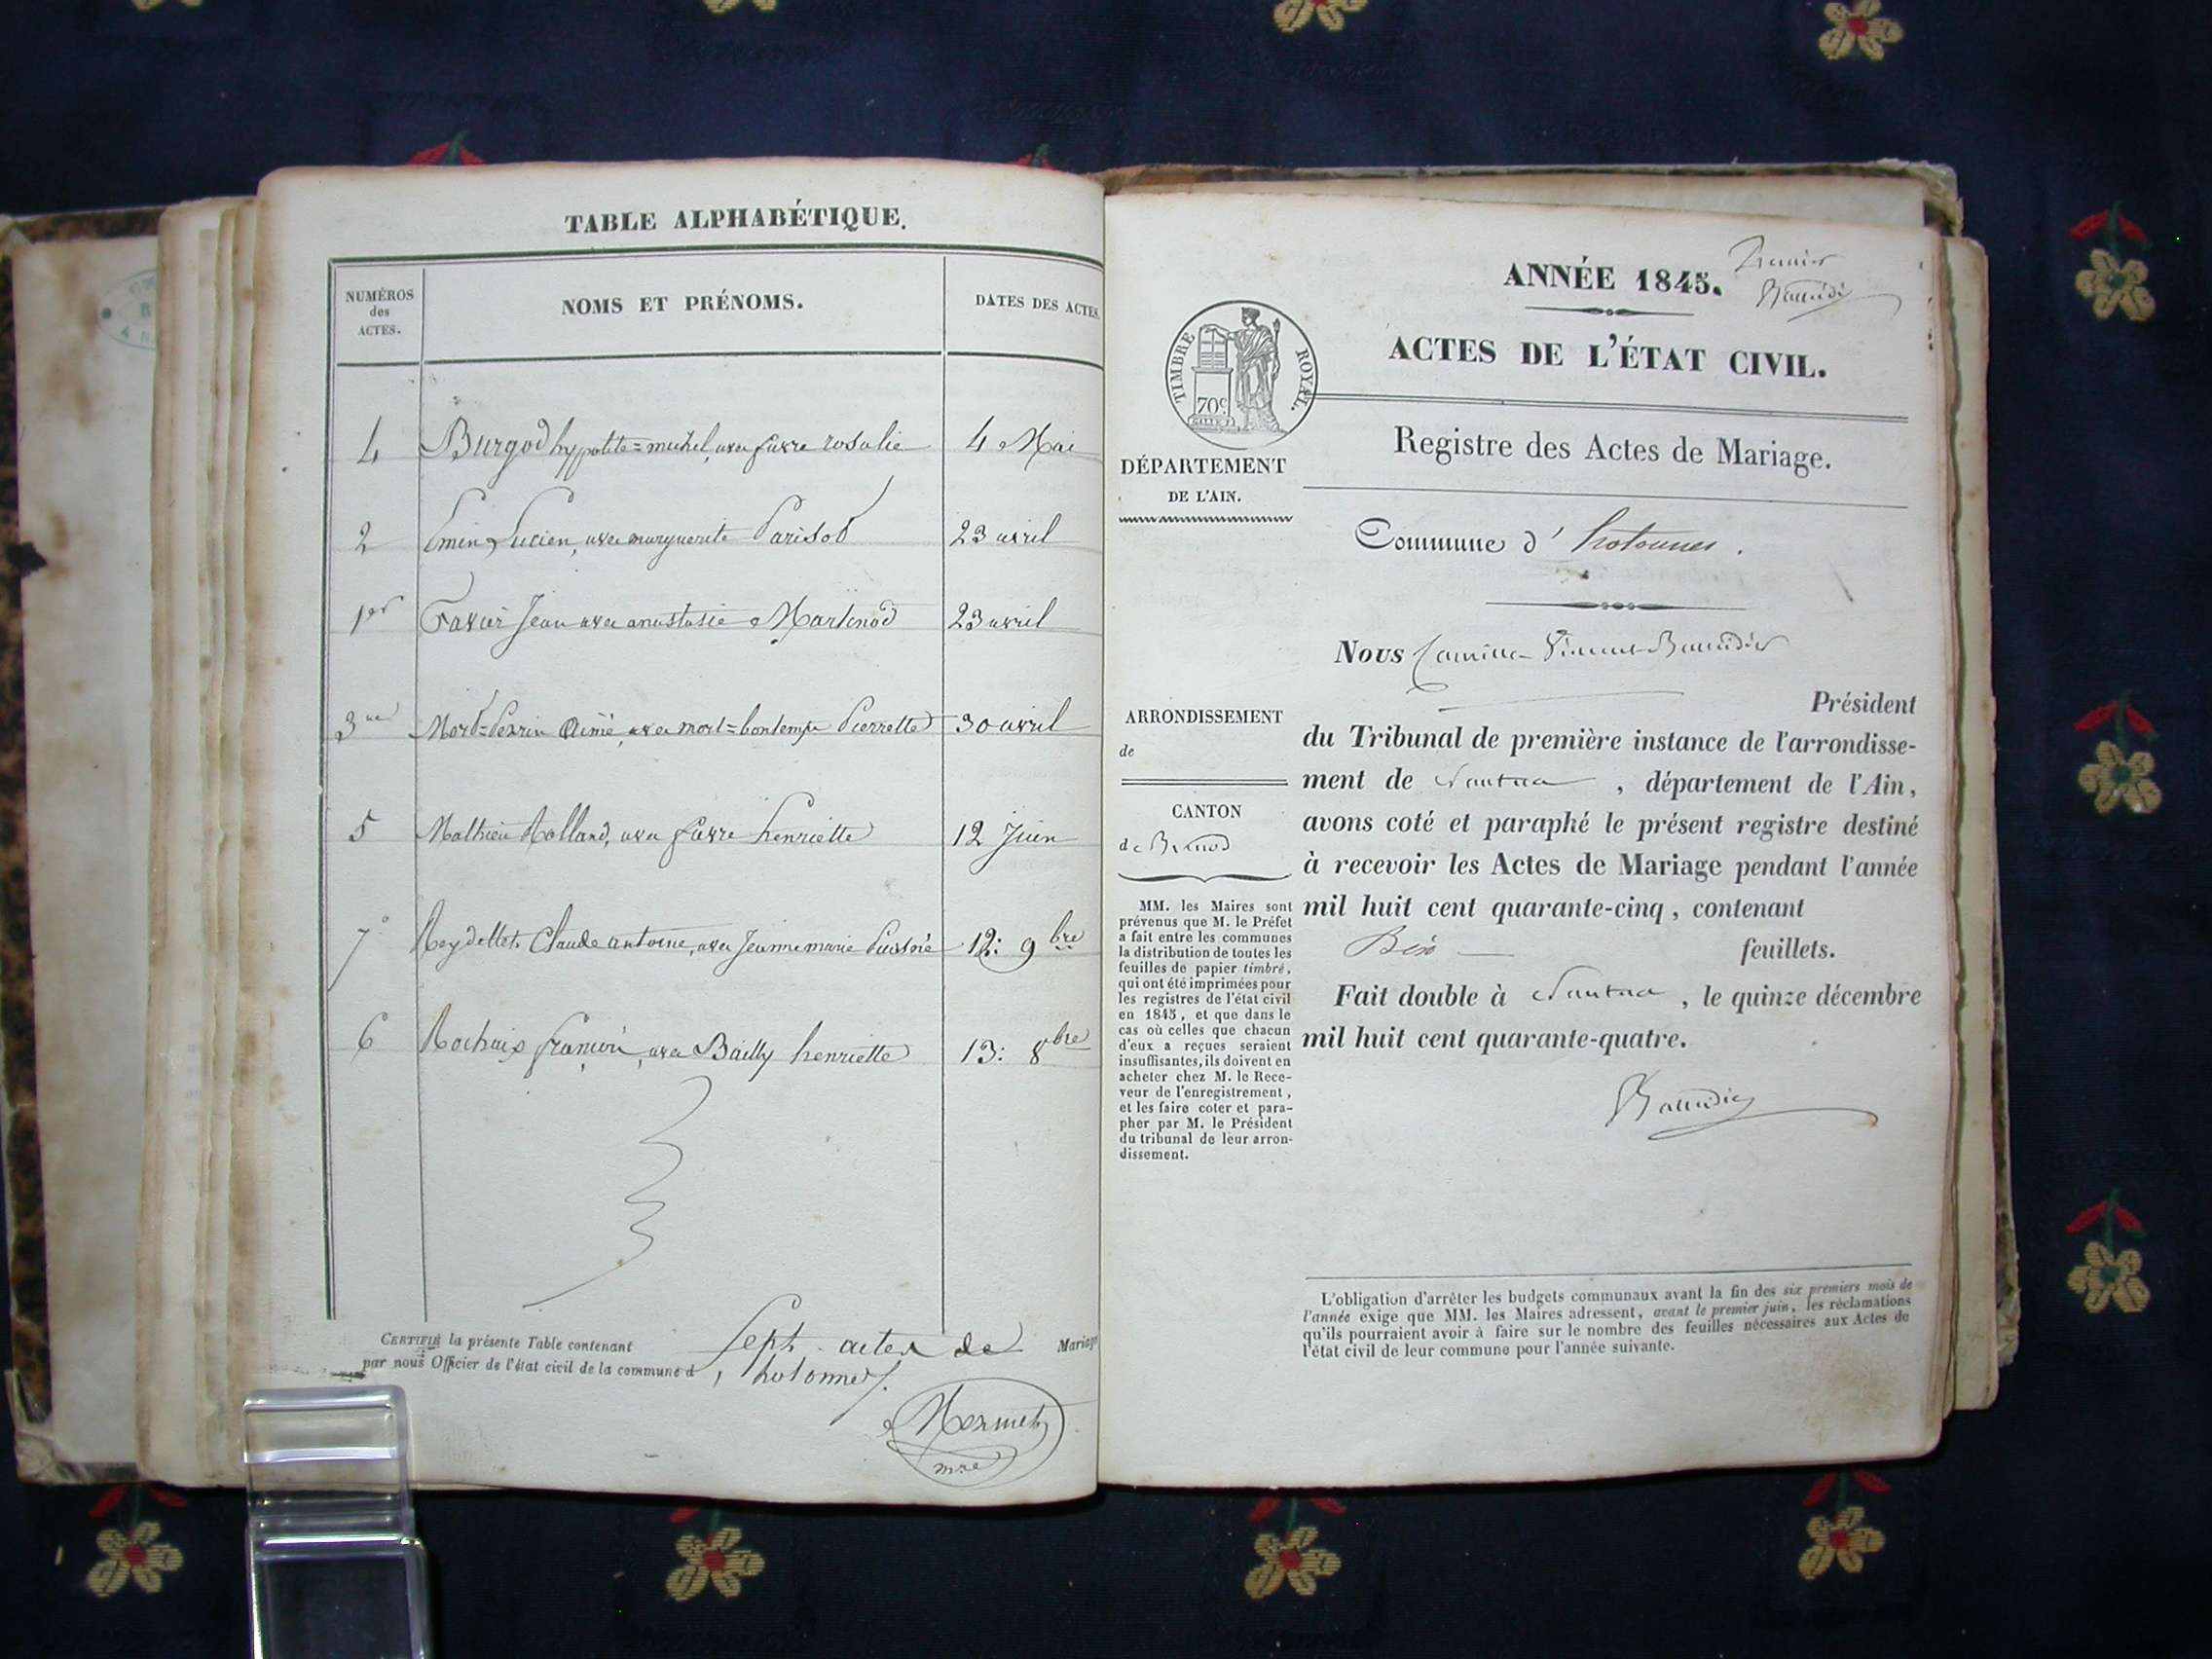 TABLE ALPHABÉTIQUE.
NUMÉROS des ACTES.
NOMS ET PRÉNOMS.
DATES DES ACTES.
4 Burgod hyppolite=michel, avec favre rosalie 4 Mai
2 Emin Lucien, avec marguerite Parisod 23 avril
1er Favier Jean avec anastasie Martinod 23 avril
3me Mort=Perrin Aimé, avec mort=bontemps Pierrette 30 avril
5 Mathieu Rolland, avec favre henriette 12 Juin
7° Reydellet Claude antoine, avec Jeanne marie 12: 9bre
6 Rochaix françois, avec Bailly henriette 13: 8bre
CERTIFIÉ la présente Table contenant sept actes de Mariage
par nous Officier de l'état civil de la commune d'hotonnes.
Mermet
mre
Premier
Baudier
ANNÉE 1845.
ACTES DE L'ÉTAT CIVIL.
TIMBRE ROYAL.
70c
Registre des Actes de Mariage.
DÉPARTEMENT
DE L'AIN.
Commune d'hotonnes.
Nous Camille Vincent
Président
ARRONDISSEMENT
de
CANTON
de Brenod
du Tribunal de première instance de l'arrondisse-
ment de Nantua, département de l'Ain,
avons coté et paraphé le présent registre destiné
à recevoir les Actes de Mariage pendant l'année
mil huit cent quarante-cinq, contenant
feuillets.
Fait double à Nantua, le quinze décembre
mil huit cent quarante-quatre.
MM. les Maires sont
prévenus que M. le Préfet
a fait entre les communes
la distribution de toutes les
feuilles de papier timbré,
qui ont été imprimées pour
les registres de l'état civil
en 1845, et que dans le
cas où celles que chacun
d'eux a reçues seraient
insuffisantes, ils doivent en
acheter chez M. le Rece-
veur de l'enregistrement,
et les faire coter et para-
pher par M. le Président
du tribunal de leur arron-
dissement.
L'obligation d'arrêter les budgets communaux avant la fin des six premiers mois de
l'année exige que MM. les Maires adressent, avant le premier juin, les réclamations
qu'ils pourraient avoir à faire sur le nombre des feuilles nécessaires aux Actes de
l'état civil de leur commune pour l'année suivante.